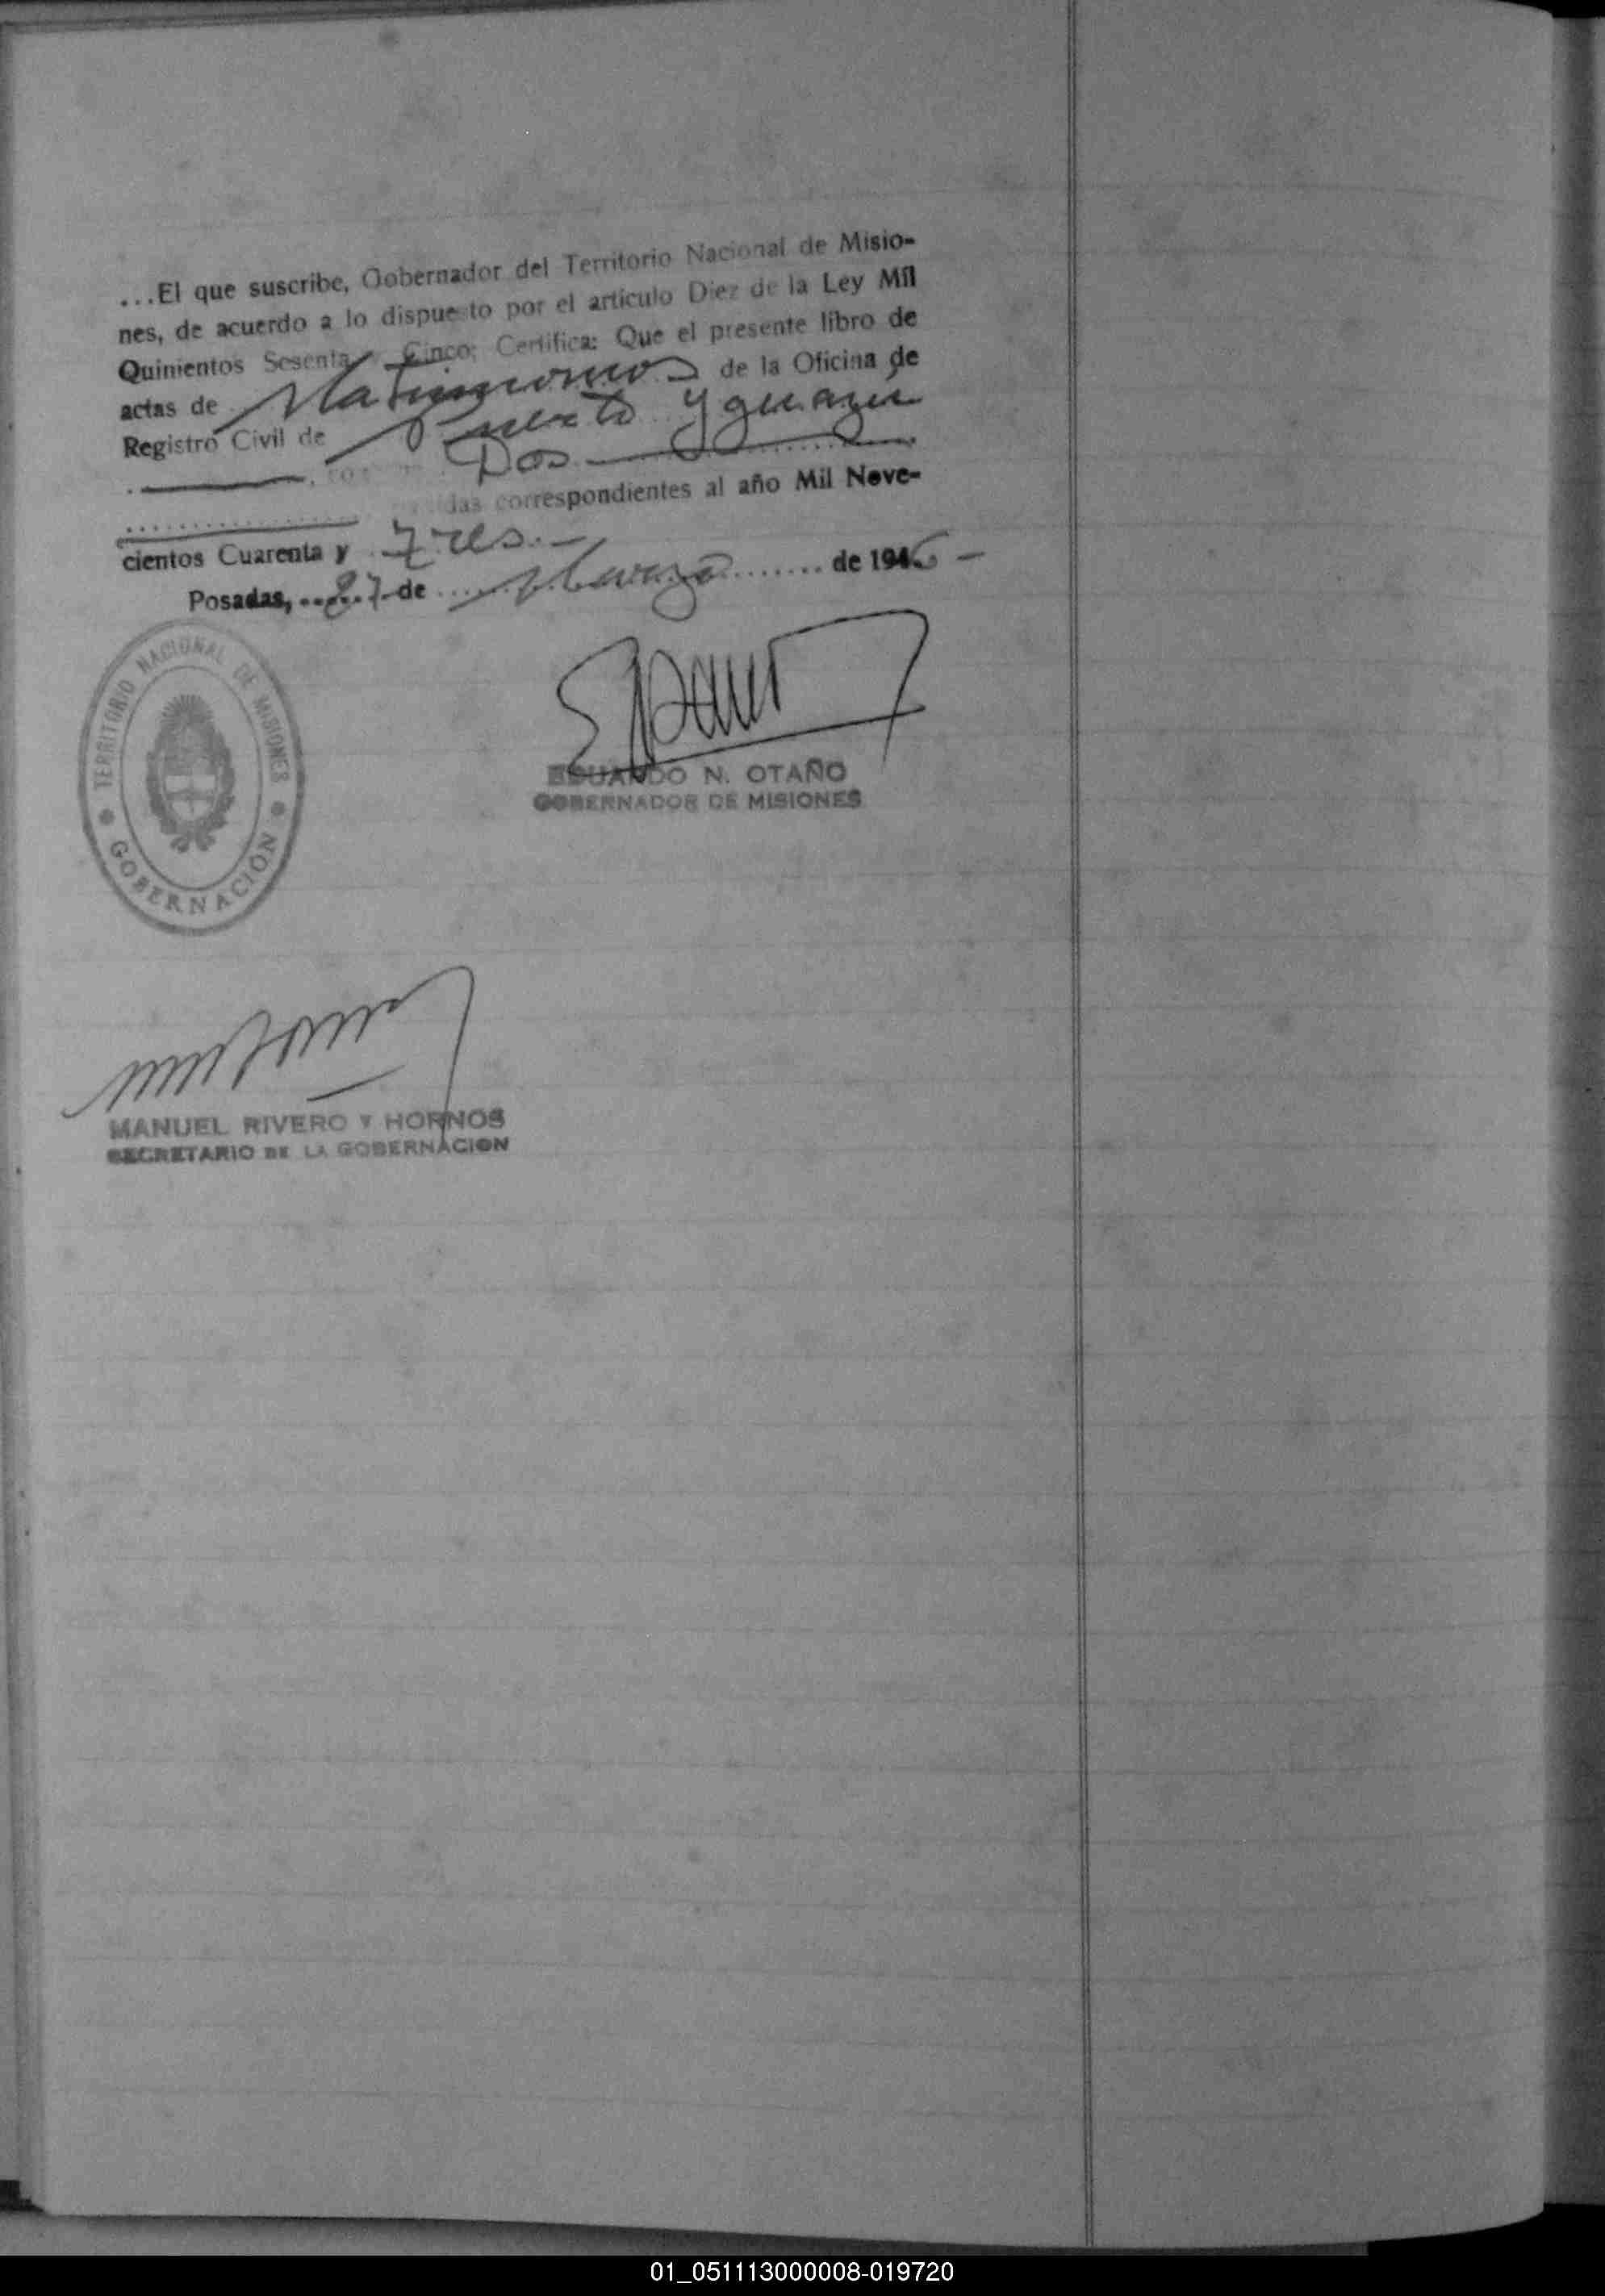 ...El que suscribe, Gobernador del Territorio Nacional de Misio-
nes, de acuerdo a lo dispuesto por el artículo Diez de la Ley Mil
Quinientos Sesenta Cinco; Certifica: Que el presente libro de
actas de Matrimonios de la Oficina de
Registro Civil de Puerto Yguazú
Dos
correspondientes al año Mil Nove-
cientos Cuarenta y Tres.-
Posadas, 27 de Marzo de 1946-
TERRITORIO NACIONAL DE MISIONES
GOBERNACIÓN
EDUARDO N. OTAÑO
GOBERNADOR DE MISIONES
MANUEL RIVERO Y HORNOS
SECRETARIO DE LA GOBERNACION
01_051113000008-019720